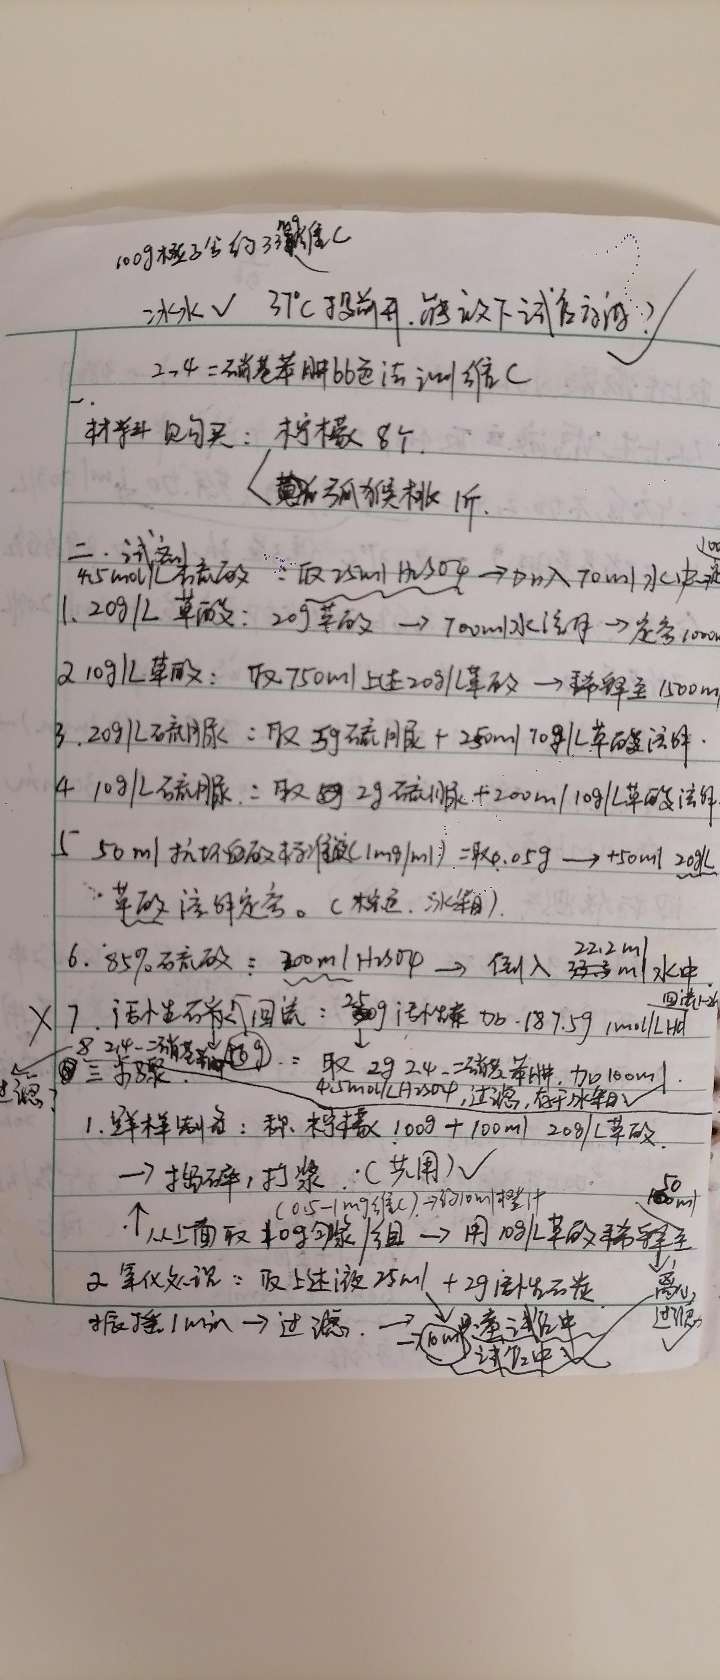 100g橙子含约33mg维C
冰水√ 37℃提前开.能放下试管的吗?
2,4二硝基苯肼比色法测维C
一.
材料 购买: 柠檬 8个.
猕猴桃 1斤.
二.试剂
4.5mol/L 硫酸: 取25ml H2SO4 → 加入 70ml 水中
1. 20g/L 草酸: 20g草酸 → 700ml水溶解 → 定容1000m
2 10g/L草酸: 取750ml上述20g/L草酸 → 稀释至 1500m
3. 20g/L硫脲: 取 5g硫脲 + 250ml 10g/L草酸溶解.
4 10g/L硫脲: 取 2g 硫脲 + 200ml 10g/L草酸溶解
5 50ml 抗坏血酸标准液(1mg/ml): 取0.05g → +50ml 20g/L
草酸 溶解定容。(棕色.冰箱).
6. 85%硫酸: 200ml H2SO4 → 倒入 22.2ml 水中.
× 7. 活性炭 回流: 25g 活性炭 加 187.5g 1mol/L 回流1-2h
8 2,4-二硝基苯肼: 取 2g 2,4-二硝基苯肼, 加100ml
过滤? 三 步骤. 4.5mol/L H2SO4, 过滤, 存于冰箱√
1. 鲜样制备: 称 柠檬 100g + 100ml 20g/L草酸.
→ 捣碎, 打浆.(共用)√
(0.5-1mg维C) → 约10ml 50ml
↑从上面取 10g匀浆/组 → 用10g/L草酸稀释至
2 氧化处理: 取上述液25ml + 2g活性炭 离心,
振摇1min → 过滤. → 10ml 试管中 过滤√
试管中